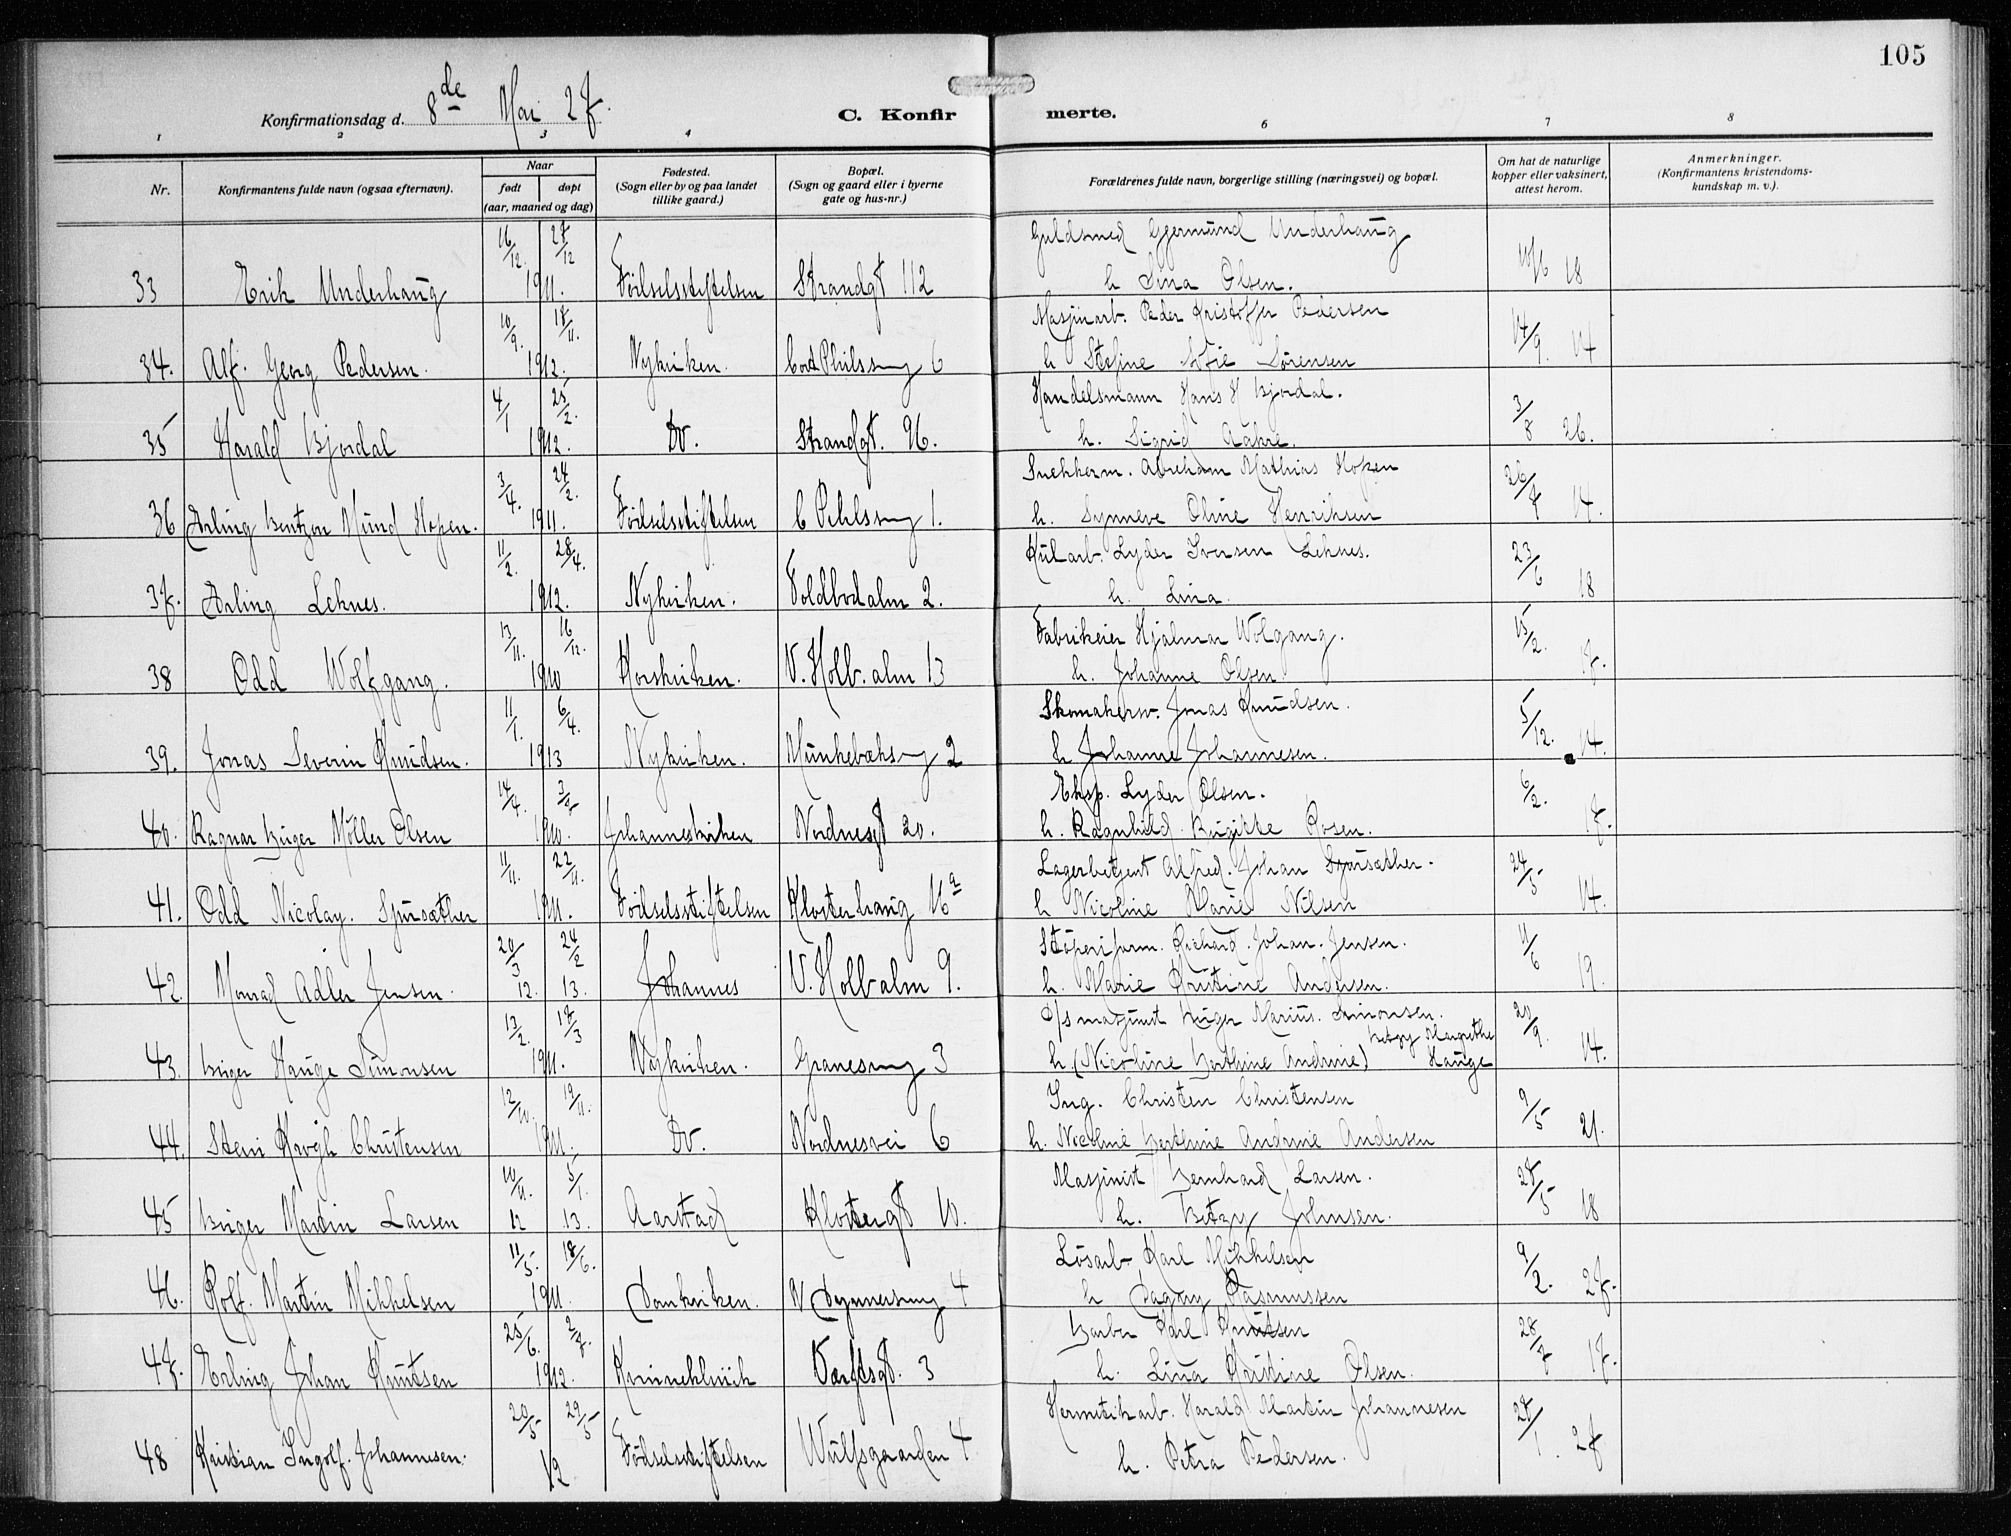 105
Konfirmationsdag d. 8de Mai 27.
C. Konfirmerte.
1 2 3 4 6 7 8
Nr.
Konfirmantens fulde navn (ogsaa efternavn).
Naar
født døpt
(aar, maaned og dag)
Fødested.
(Sogn eller by og paa landet
tillike gaard.)
Bopæl.
(Sogn og gaard eller i byerne
gate og hus-nr.)
Forældrenes fulde navn, borgerlige stilling (næringsvei) og bopæl.
Om hat de naturlige
kopper eller vaksinert,
attest herom.
Anmerkninger.
(Konfirmantens kristendoms-
kundskap m. v.).
16/12 27/12 Guldsmed Gjermund Underhaug
33 Erik Underhaug 1911. Födselsstiftelsen Strandgt 112 h Lina Olsen. 18
10/9. 17/11. Masjinarb. Peder Kristoffer Pedersen 14/9.
34. Alf. Georg Pedersen. 1912. Nykirken. 6 h Stefine Sofie Sørensen 14
4/1 25/2. Handelsmann Hans H Bjordal. 3/8
35 Harald Bjordal 1912. Do. Strandgt. 96. h. Sigrid Aakre. 26.
3/4. 24/2. Snekkerm. Abraham Mathias Hopen 26/7
36 Arling Bentzon Mund Hopen. 1911. Födselsstiftelsen 1. h. Synneve Oline Henriksen 14.
11/2. 28/4. Kularb. Lyder Iversen Leknes. 23/6
37. Arling Leknes. 1912. Nykirken. Toldbodalm 2. h. Lina. 18
13/11. 16/12. Fabrikeier Hjalmar Wolgang. 15/2.
38 Odd Wolfgang. 1910 Korskirken. V. Holb. alm 13 h. Johanne Olsen 17.
11/1. 6/4. Skomakersv. Jonas Knudsen. 5/12.
39. Jonas Severin Knudsen. 1913 Nykirken. Munkebæksmg 2 h Johanne Johannesen. 14.
14/4. Eksp. Lyder Olsen. 6/2.
40. Ragnar Birger Möller Olsen 1910. Johanneskirken Nordnesgt 20. h. Ragnhild Birgitte Rosen. 17.
11/11. 22/11. Lagerbetjent Alfred. Johan Sjursæther. 24/5
41. Odd Nicolay. Sjursæther 1911. Födselsstiftelsen Klosterhaug 16a h Nicoline Marie Nilsen 14.
20/3 24/2 Støperiform. Richard. Johan. Jensen. 11/6
42. Monrad Adler Jensen. 12. 13. Johannes V. Holb alm 9. h. Marie Kristine Andersen. 19.
13/2. 17/3 D/s masjinist Birger Marius. Simonsen. 20/9.
43. Birger Hauge Simonsen 1911. Nykirken. Granesmg 3 h (Nicoline Berthine Andrine) Betzy Margrethe Hauge 14.
12/10. 19/11. Ing. Christen Christensen 9/5
44. Krogh Christensen 1911. Do. Nordnesvei 6 h. Nicoline Berthine Andrine Andersen 21.
10/11. 5/1. Masjinist Bernhard Larsen. 27/5
45 Birger Martin Larsen 12 13. Aarstad Klostergt 10. h. Betzy Johnsen. 18
11/5. 18/6. Løsarb. Karl Mikkelsen 9/2.
46. Rolf. Martin Mikkelsen 1911. Domkirken. 4 h Dagny Rasmussen 27.
25/6. 2/7. Barber Karl Knutsen 28/7
47. Erling Johan Knutsen 1912. Kvinneklinik Verftsgt. 3 h. Lina Kristine Olsen. 17.
20/5 29/5 Hermetikarb. Harald Martin Johannesen 27/1.
48 Kristian Ingolf. Johannesen. 12 Födselsstiftelsen Wulfsgaarden 4 h. Petra Pedersen. 27